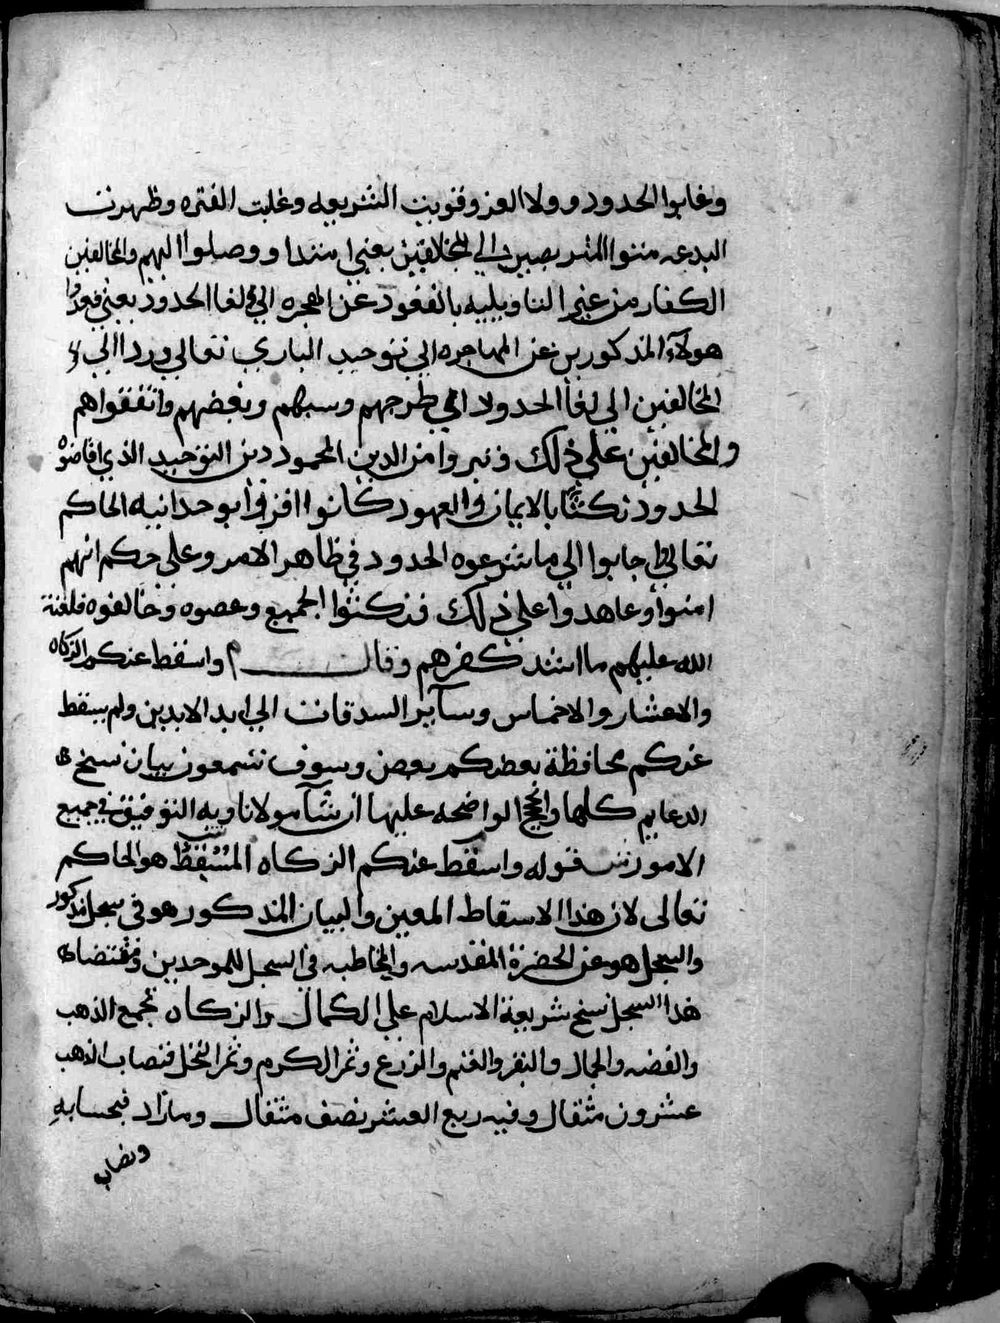 وغابوا الحدود وولا العز وقويت الشريعه وغلبت الفتره وظهرت
البدعه متنوا المتربصين الي المخلافين يعني امتدا ووصلوا اليهم والمخالفين
الكفار من غير التاويليه بالقعود عن الهجره الي لغا الحدود يعني قعدوا
هولآء المذكورين عن المهاجره الي توحيد الباري تعالي وردا الي
المخالفين الي لغا الحدود اي طرحهم وسبهم وبعضهم واتفقواهم
والمخالفين علي ذلك وتبروا من الدين المحمود دين التوحيد الذي افاضوه
الحدود نكثا بالايمان والعهود كانوا اقروا بوحدانيه الحاكم
تعالي اجابوا الي ما شرعوه الحدود في ظاهر الامر وعلي حكم انهم
امنوا وعاهدوا علي ذلك فنكثوا الجميع وعصوه وخالفوه فلعنة
الله عليهم ما اشد كفرهم وقال م واسقط عنكم الزكاه
والاعشار والاخماس وسآير السدقات الي ابد الابدين ولم يسقط
عنكم محافظة بعضكم بعض وسوف تسمعون بيان نسخ
الدعايم كلها والحجج الواضحه عليها ان شآ مولانا وبه التوفيق في جميع
الامور ش قوله واسقط عنكم الزكاه المسقط هو الحاكم
تعالي لان هذا الاسقاط المعين والبيان المذكور هو في سجل مذكور
والسجل هو عن الحضرة المقدسه والمخاطبه في السجل للموحدين ومقتضا
هذا السجل نسخ شريعة الاسلام علي الكمال والزكاه تجمع الذهب
والفضه والجمال والبقر والغنم والزرع وثمر الكرم وثمر النخل فنصاب الذهب
عشرون مثقال وفيه ربع العشر نصف مثقال ومازاد فبحسابه
ونصاب